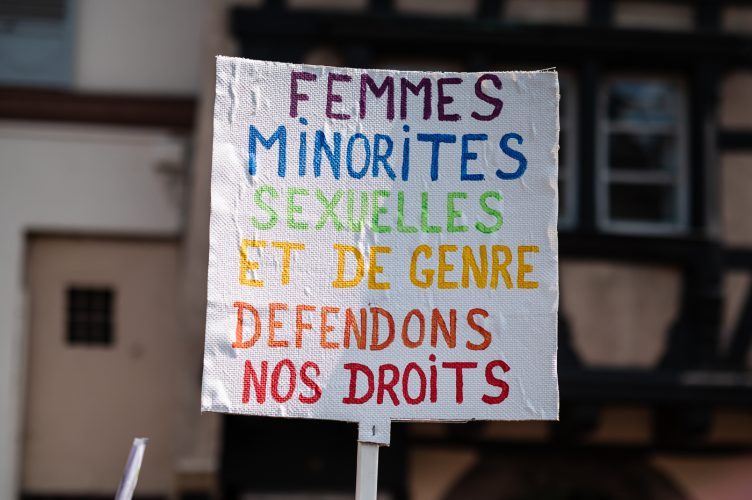 FEMMES
MINORITES
SEXUELLES
ET DE GENRE
DEFENDONS
NOS DROITS